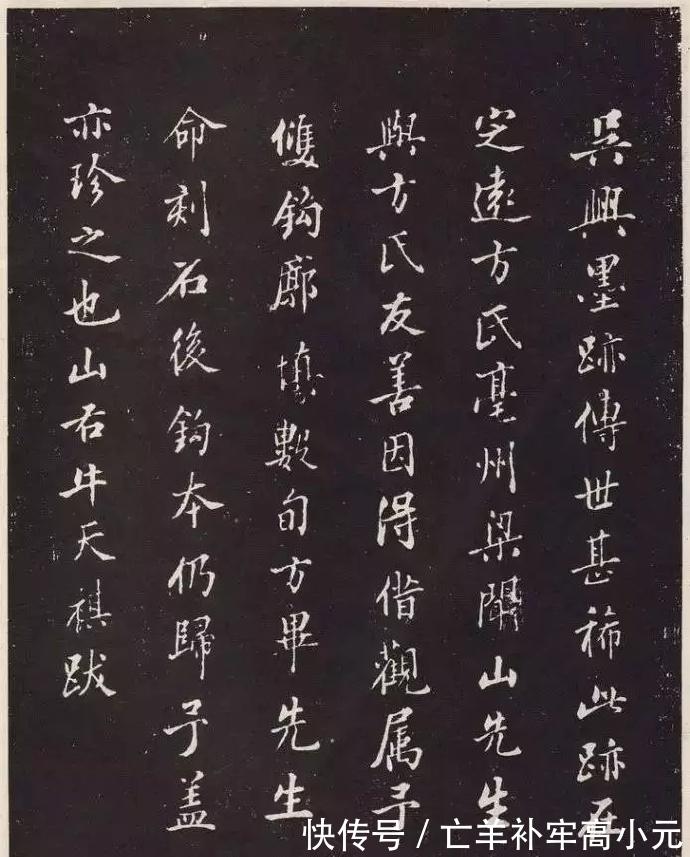 吳興墨跡傳世甚稀此跡在
定遠方氏亳州梁聞山先生
與方氏友善因得借觀属予
雙鈎廓填數旬方畢先生
命刻石後鈎本仍歸予盖
亦珍之也山右牛天祺跋
快传号/亡羊补牢高小元